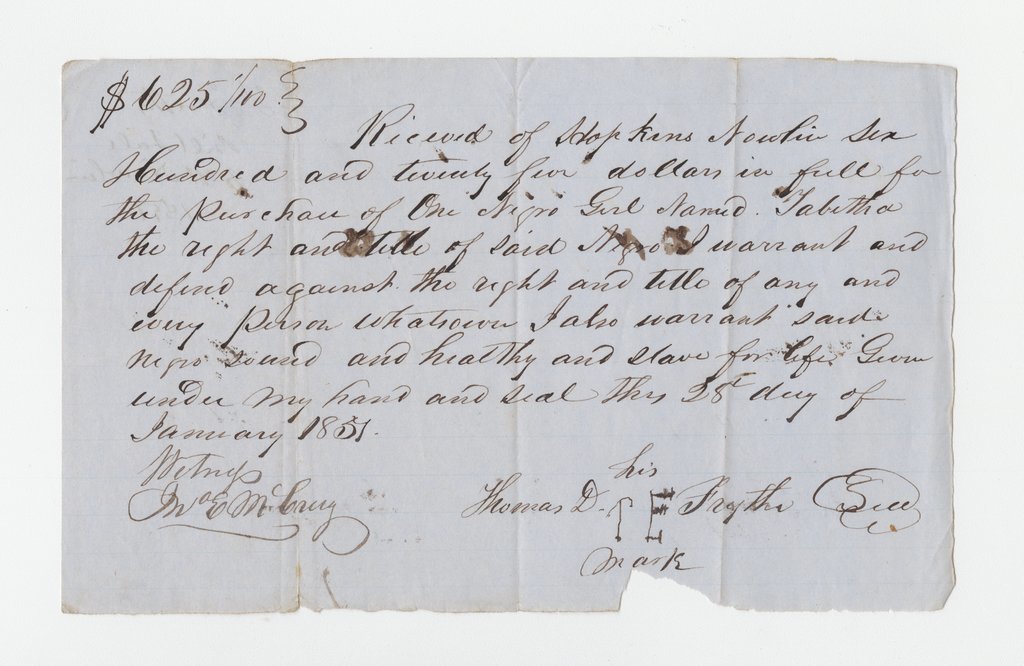 $625 1/100
Riceved of Hopkins Nowlin Six
Hundred and twenty five dollars in full for
the purchase of One Negro Girl Named. Tabitha
the right and title of said Negro I warrant and
defend against the right and title of any and
every person whatsoever I also warrant said
negro sound and healthy and slave for life Given
under my hand and seal this 28 day of
January 1851.
Witness
Jno E McCrey
his
Thomas D. Frythe Seal
mark